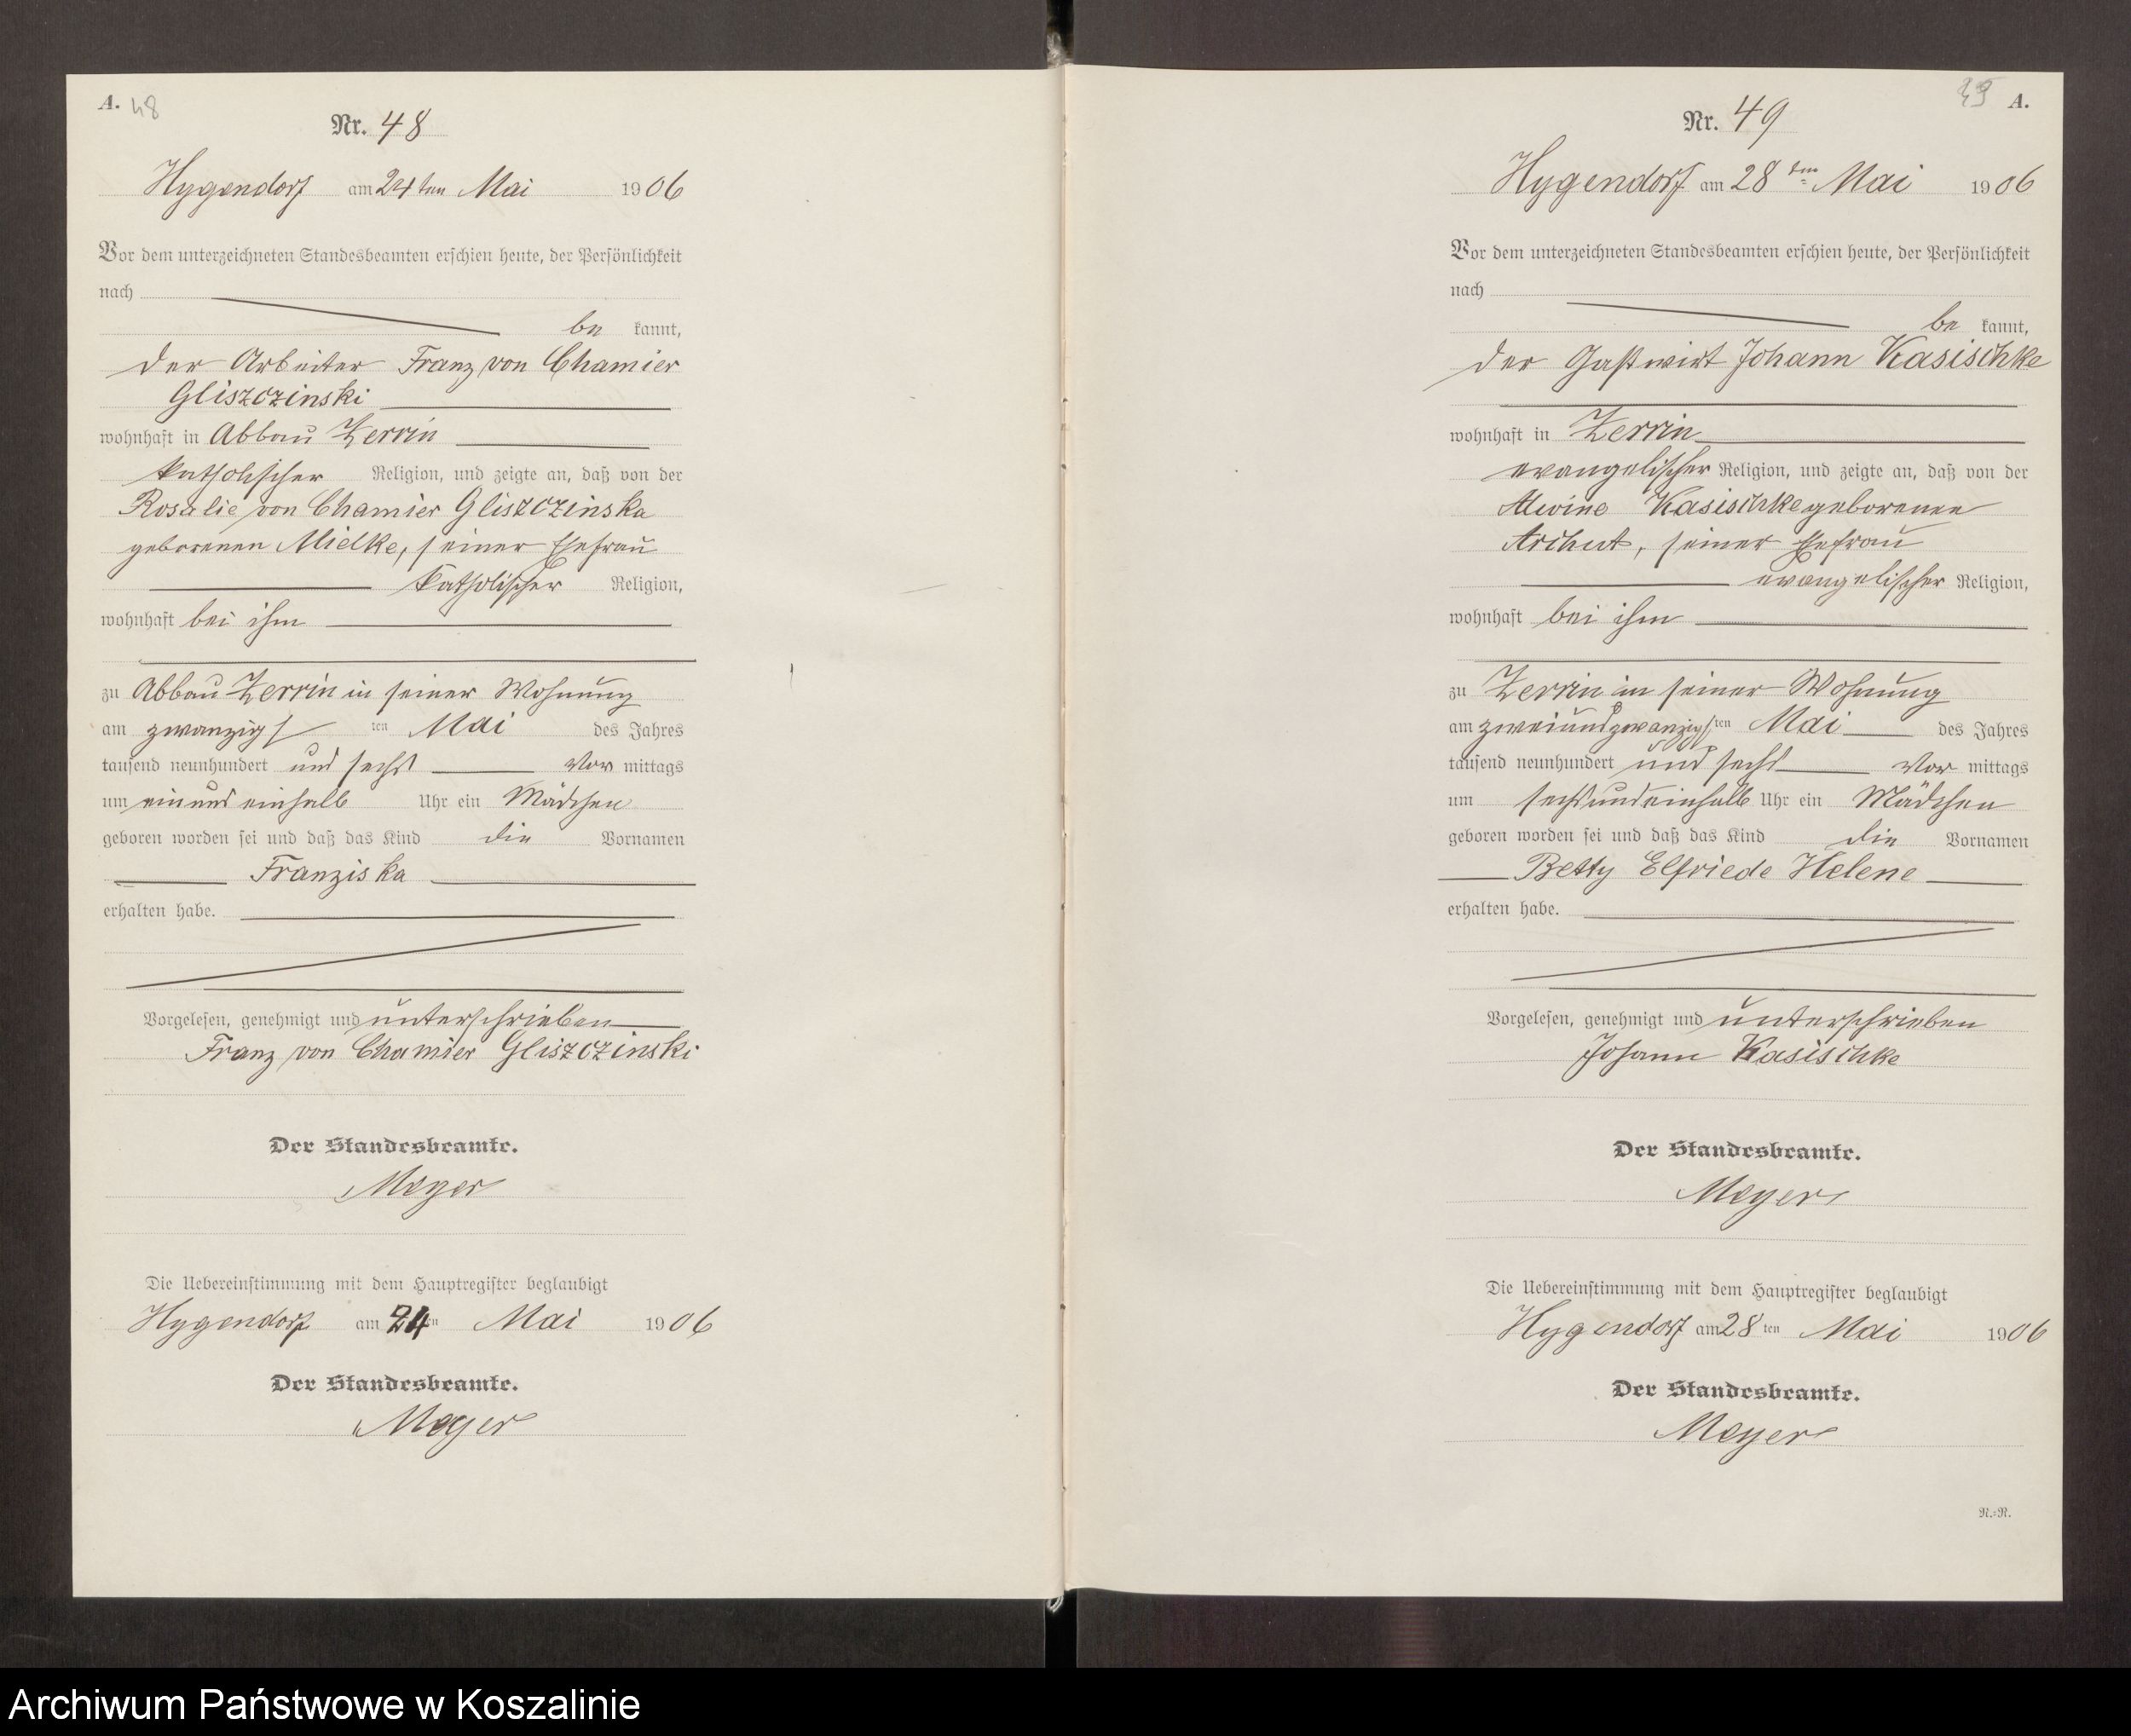 A. 48
Nr. 48
Hygendorf am 24ten Mai 1906
Vor dem unterzeichneten Standesbeamten erschien heute, der Persönlichkeit
nach
be kannt,
der Arbeiter Franz von Chamier
Gliszczinski
wohnhaft in Abbau Zerrin
katholischer Religion, und zeigte an, daß von der
Rosalie von Chamier Gliszczinska
geborenen Mielke, seiner Ehefrau
katholischer Religion,
wohnhaft bei ihm
zu Abbau Zerrin in seiner Wohnung
am zwanzigsten Mai des Jahres
tausend neunhundert und sechs Vor mittags
um einundeinhalb Uhr ein Mädchen
geboren worden sei und daß das Kind die Vornamen
Franziska
erhalten habe.
Vorgelesen, genehmigt und unterschrieben
Franz von Chamier Gliszczinski
Der Standesbeamte.
Meyer
Die Uebereinstimmung mit dem Hauptregister beglaubigt
Hygendorf am 24ten Mai 1906
Der Standesbeamte.
Meyer
49 A.
Nr. 49
Hygendorf am 28ten Mai 1906
Vor dem unterzeichneten Standesbeamten erschien heute, der Persönlichkeit
nach
be kannt,
der Gastwirt Johann Kasischke
wohnhaft in Zerrin
evangelischer Religion, und zeigte an, daß von der
Alwine Kasischke geborenen
Archut, seiner Ehefrau
evangelischer Religion,
wohnhaft bei ihm
zu Zerrin in seiner Wohnung
am zweiundzwanzigsten Mai des Jahres
tausend neunhundert und sechs Vor mittags
um sechsundeinhalb Uhr ein Mädchen
geboren worden sei und daß das Kind die Vornamen
Betty Elfriede Helene
erhalten habe.
Vorgelesen, genehmigt und unterschrieben
Johann Kasischke
Der Standesbeamte.
Meyer
Die Uebereinstimmung mit dem Hauptregister beglaubigt
Hygendorf am 28ten Mai 1906
Der Standesbeamte.
Meyer
R.=R.
Archiwum Państwowe w Koszalinie